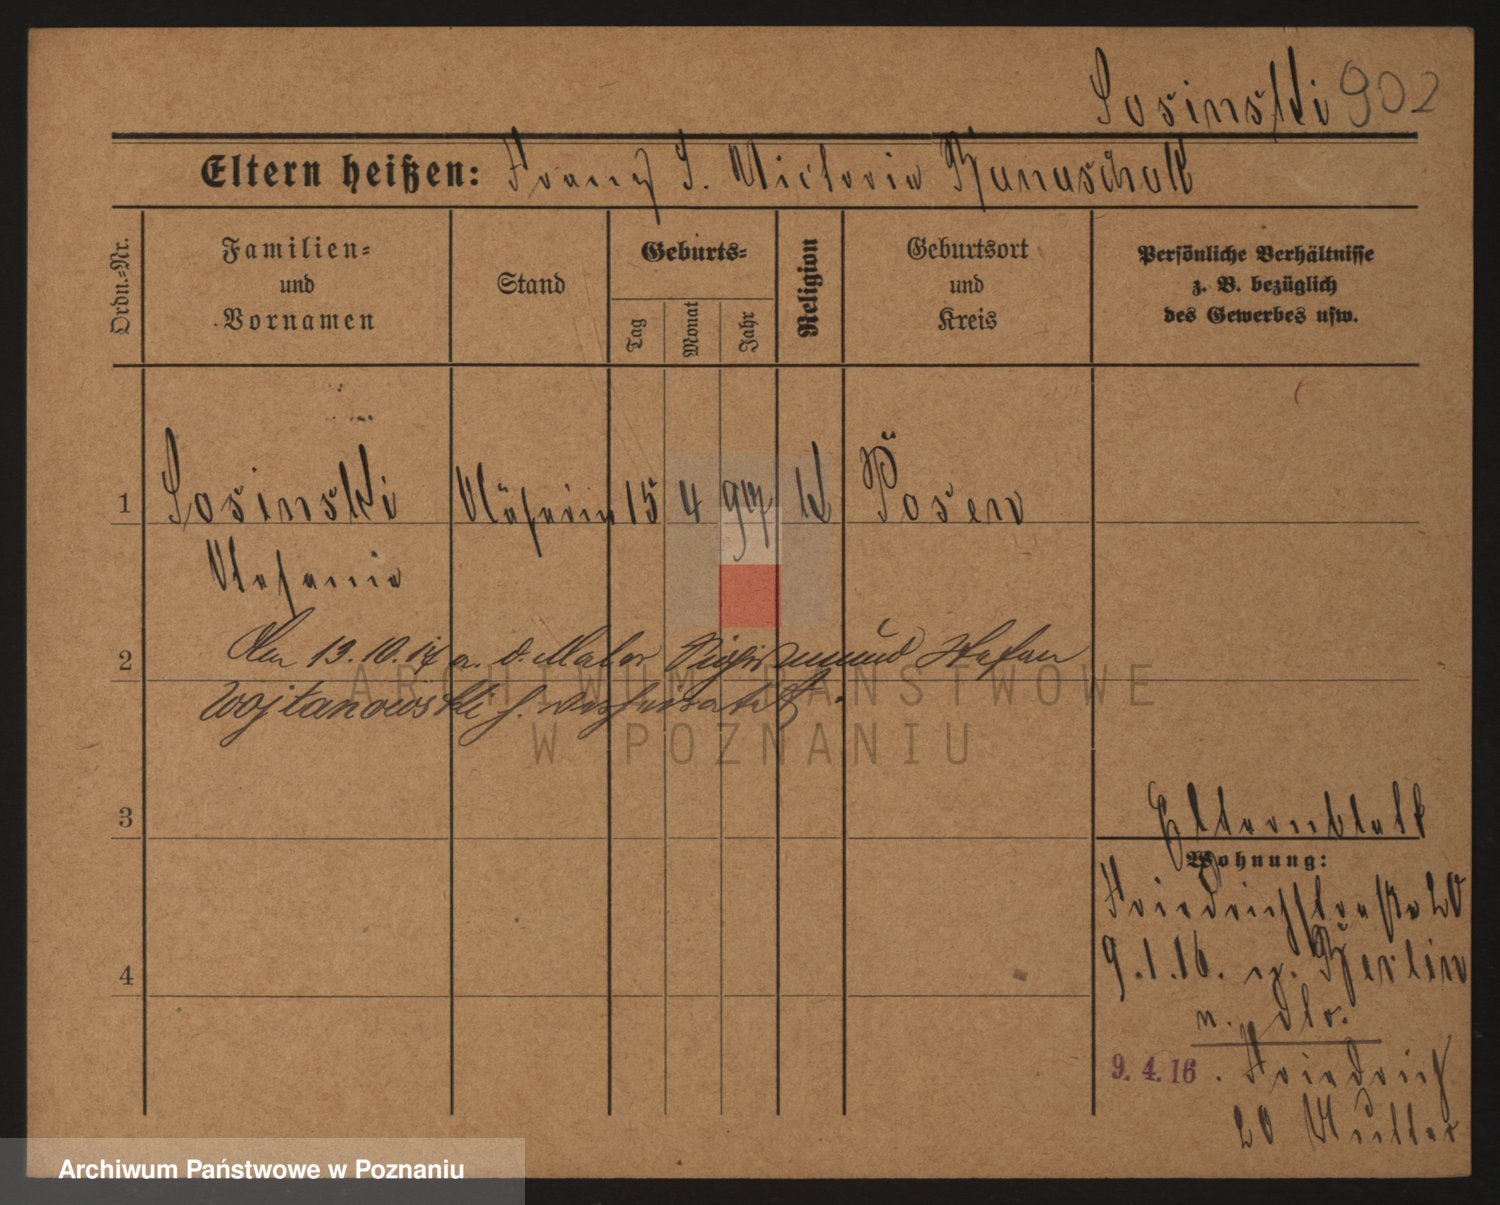 Sosinski 902
Eltern heißen: Franz S. Victoria Banaschak
Ordn.=Nr.
Familien=
und
Vornamen
Stand
Geburts=
Tag
Monat
Jahr
Religion
Geburtsort
und
Kreis
Persönliche Verhältnisse
z. B. bezüglich
des Gewerbes usw.
1 Sosinski Näherin 15 4 97 k Posen
Stefania
2 Am 13.10.17 a. d. Maler Stefan
Wojtanowski
ARCHIWUM PAŃSTWOWE
W POZNANIU
3
Elternblatt
Wohnung:
Friedrichstraße 20
4
9.1.16. n. Berlin
n. dto.
9. 4. 16 . Friedrich
20 Mutter
Archiwum Państwowe w Poznaniu